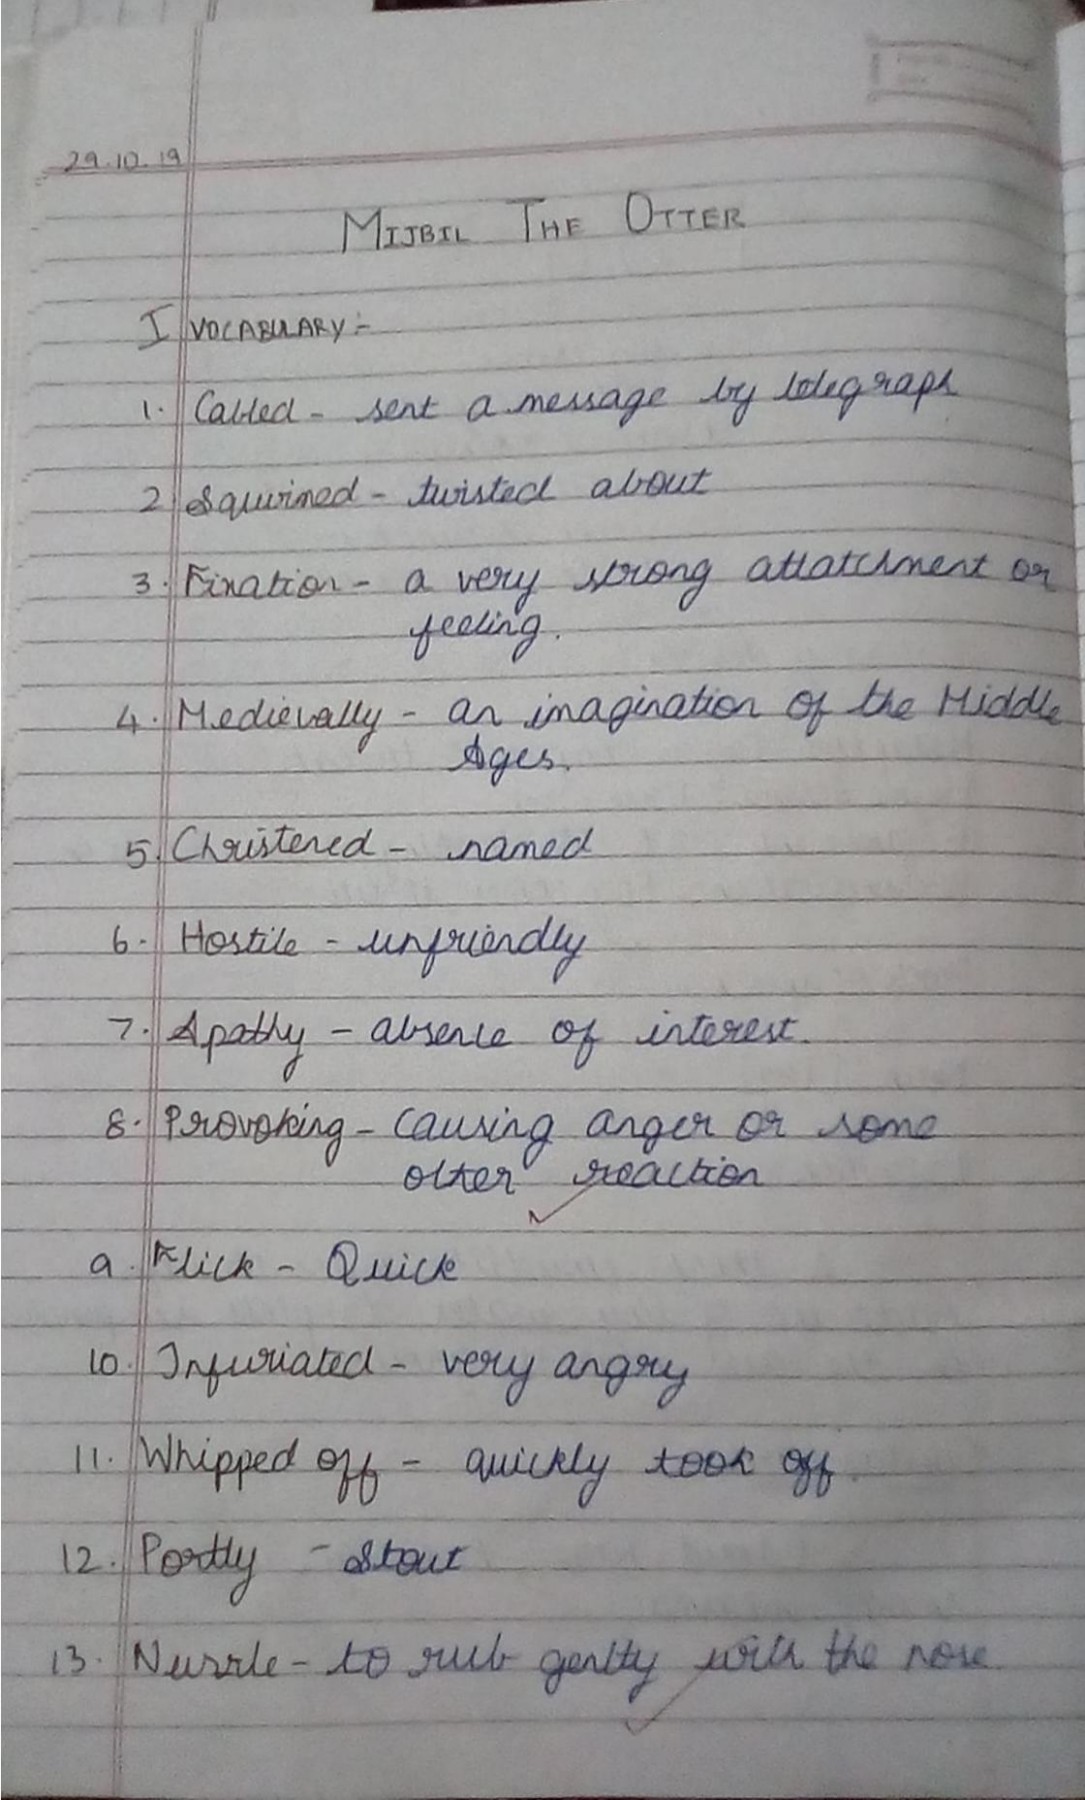 29.10.19
MIJBIL THE OTTER
I VOCABULARY:-
1. Cabled - sent a message by telegraph
2 Squirmed - twisted about
3. Fixation - a very strong attatchment or
feeling.
4. Medievally - an imagination of the Middle
Ages.
5. Christened - named
6. Hostile - unfriendly
7. Apathy - absence of interest.
8. Provoking - causing anger or some
other reaction
9. Flick - Quick
10. Infuriated - very angry
11. Whipped off - quickly took off.
12. Portly - stout
13. Nuzzle - to rub gently with the nose